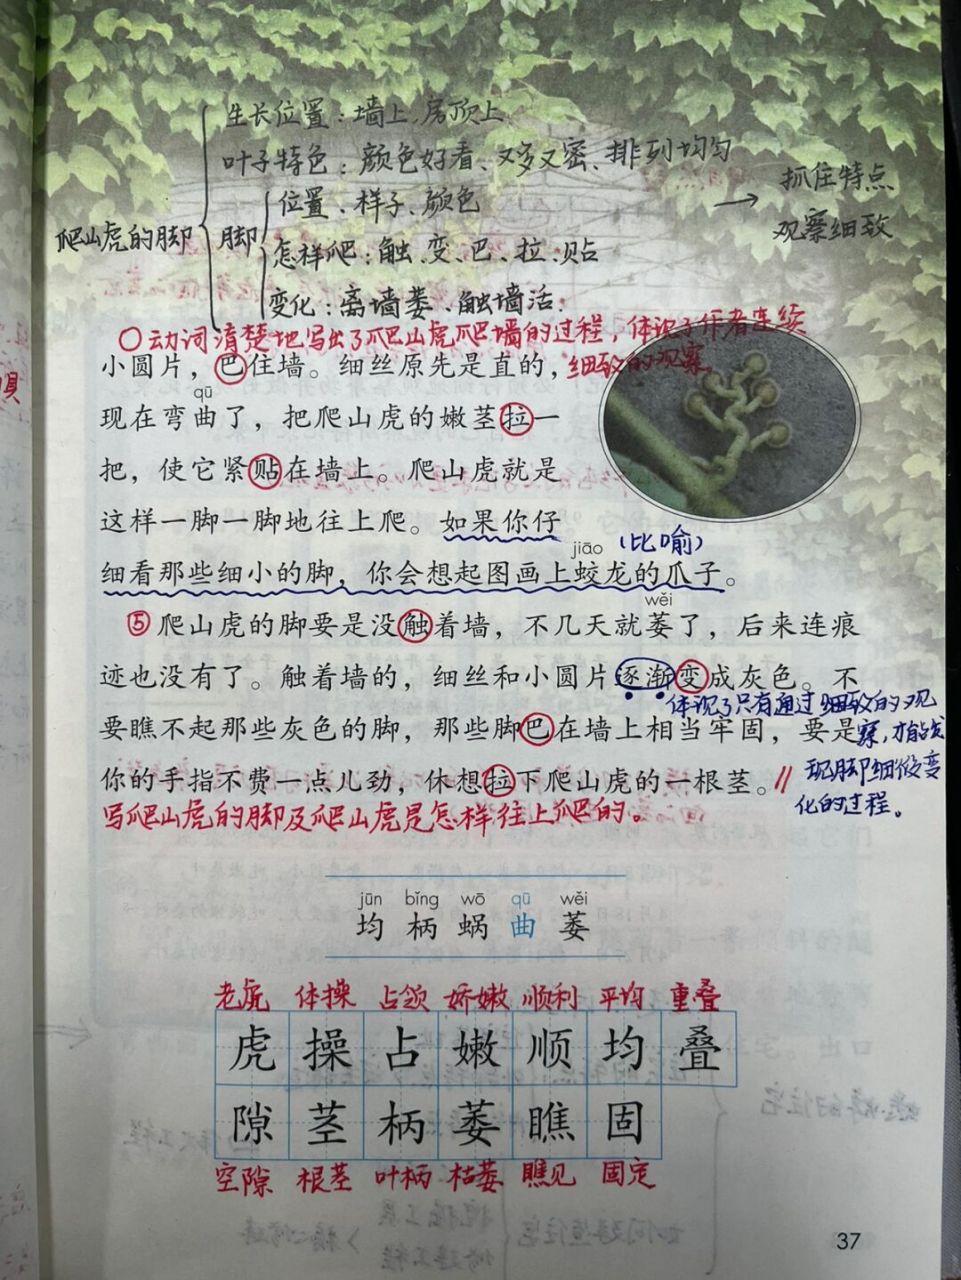 生长位置：墙上、房顶上
叶子特色：颜色好看、又多又密、排列均匀
爬山虎的脚
脚
位置、样子、颜色
怎样父：触、变、巴、拉、贴
变化：离墙萎、触墙活
→ 抓住特点
观察细致
○动词清楚地写出了爬山虎爬墙的过程，体现了作者连续
细致的观察。
小圆片，巴住墙。细丝原先是直的，
qū
现在弯曲了，把爬山虎的嫩茎拉一
把，使它紧贴在墙上。爬山虎就是
这样一脚一脚地往上爬。如果你仔
jiāo
（比喻）
细看那些细小的脚，你会想起图画上蛟龙的爪子。
wěi
⑤爬山虎的脚要是没触着墙，不几天就萎了，后来连痕
迹也没有了。触着墙的，细丝和小圆片逐渐变成灰色。不
体现了只有通过细致的观
要瞧不起那些灰色的脚，那些脚巴在墙上相当牢固，要是
察，才能发
你的手指不费一点儿劲，休想拉下爬山虎的一根茎。//
现脚细微变
化的过程。
写爬山虎的脚及爬山虎是怎样往上爬的。
jūn bǐng wō qū wěi
均 柄 蜗 曲 萎
老虎 体操 占领 娇嫩 顺利 平均 重叠
虎 操 占 嫩 顺 均 叠
隙 茎 柄 萎 瞧 固
空隙 根茎 叶柄 枯萎 瞧见 固定
37